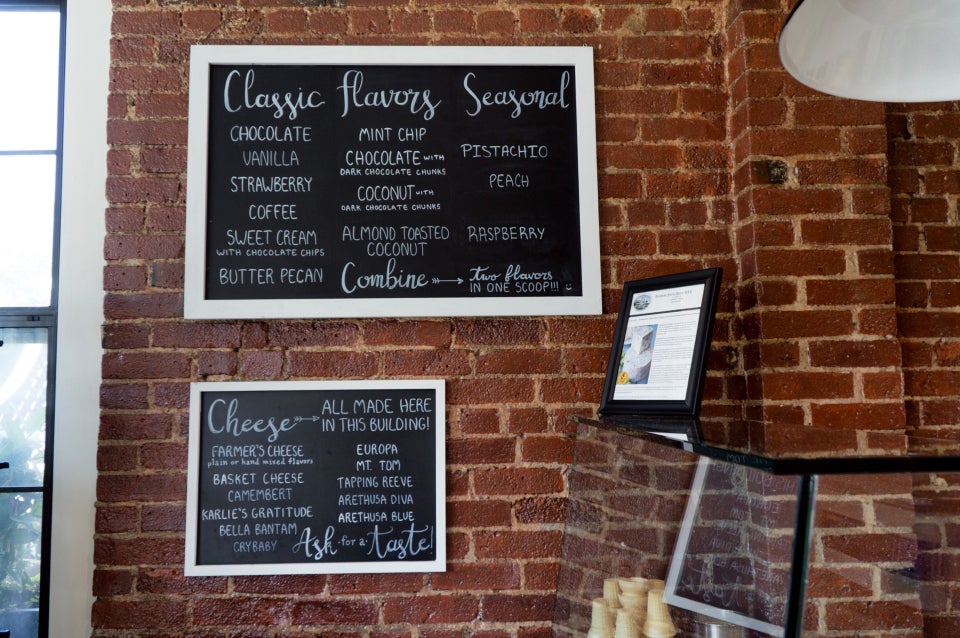 Classic flavors
CHOCOLATE
VANILLA
STRAWBERRY
COFFEE
SWEET CREAM
WITH CHOCOLATE CHIPS
BUTTER PECAN
MINT CHIP
CHOCOLATE WITH
DARK CHOCOLATE CHUNKS
COCONUT WITH
DARK CHOCOLATE CHUNKS
ALMOND TOASTED
COCONUT
Combine → two flavors
IN ONE SCOOP!!!
Seasonal
PISTACHIO
PEACH
RASPBERRY
Cheese → ALL MADE HERE
IN THIS BUILDING!
FARMER'S CHEESE
plain or hand mixed flavors
BASKET CHEESE
CAMEMBERT
KARLIE'S GRATITUDE
BELLA BANTAM
CRYBABY
EUROPA
MT. TOM
TAPPING REEVE
ARETHUSA DIVA
ARETHUSA BLUE
Ask for a Taste!